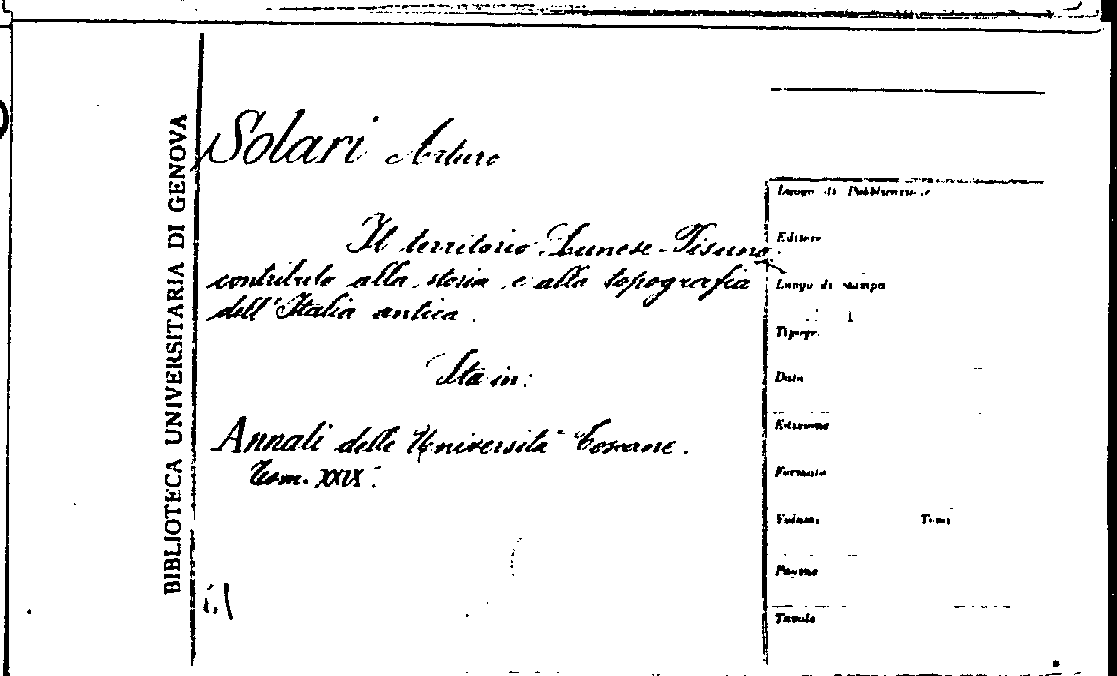 BIBLIOTECA UNIVERSITARIA DI GENOVA
Solari Arturo
Il territorio Lunese-Pisano.
contributo alla storia e alla topografia
dell'Italia antica.
Sta in:
Annali delle Università Toscane.
Tom. XXIX.
Luogo di Pubblicazione
Editore
Luogo di stampa
Tipogr.
Data
Edizione
Formato
Volumi Tomi
Pagine
Tavole